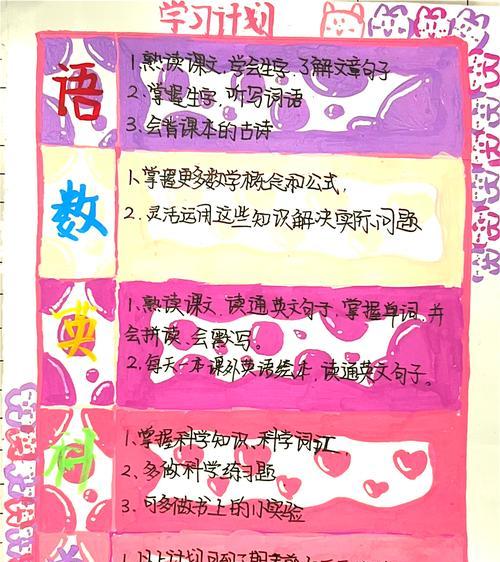 学习计划
语
1.熟读课文,学会生字,了解文章句子
2.掌握生字,听写词语
3.会背课本的古诗
数
1、掌握更多数学概念和公式,
2.灵活运用这些知识解决实际问题
英
1.熟读课文,读通英文句子,掌握单词,并
会拼读,会默写。
2.每天一本课外英语绘本,读通英文句子。
科
1.掌握科学知识、科学词汇,
2.多做科学练习题,
3.可多做书上的小实验
1.以上计划